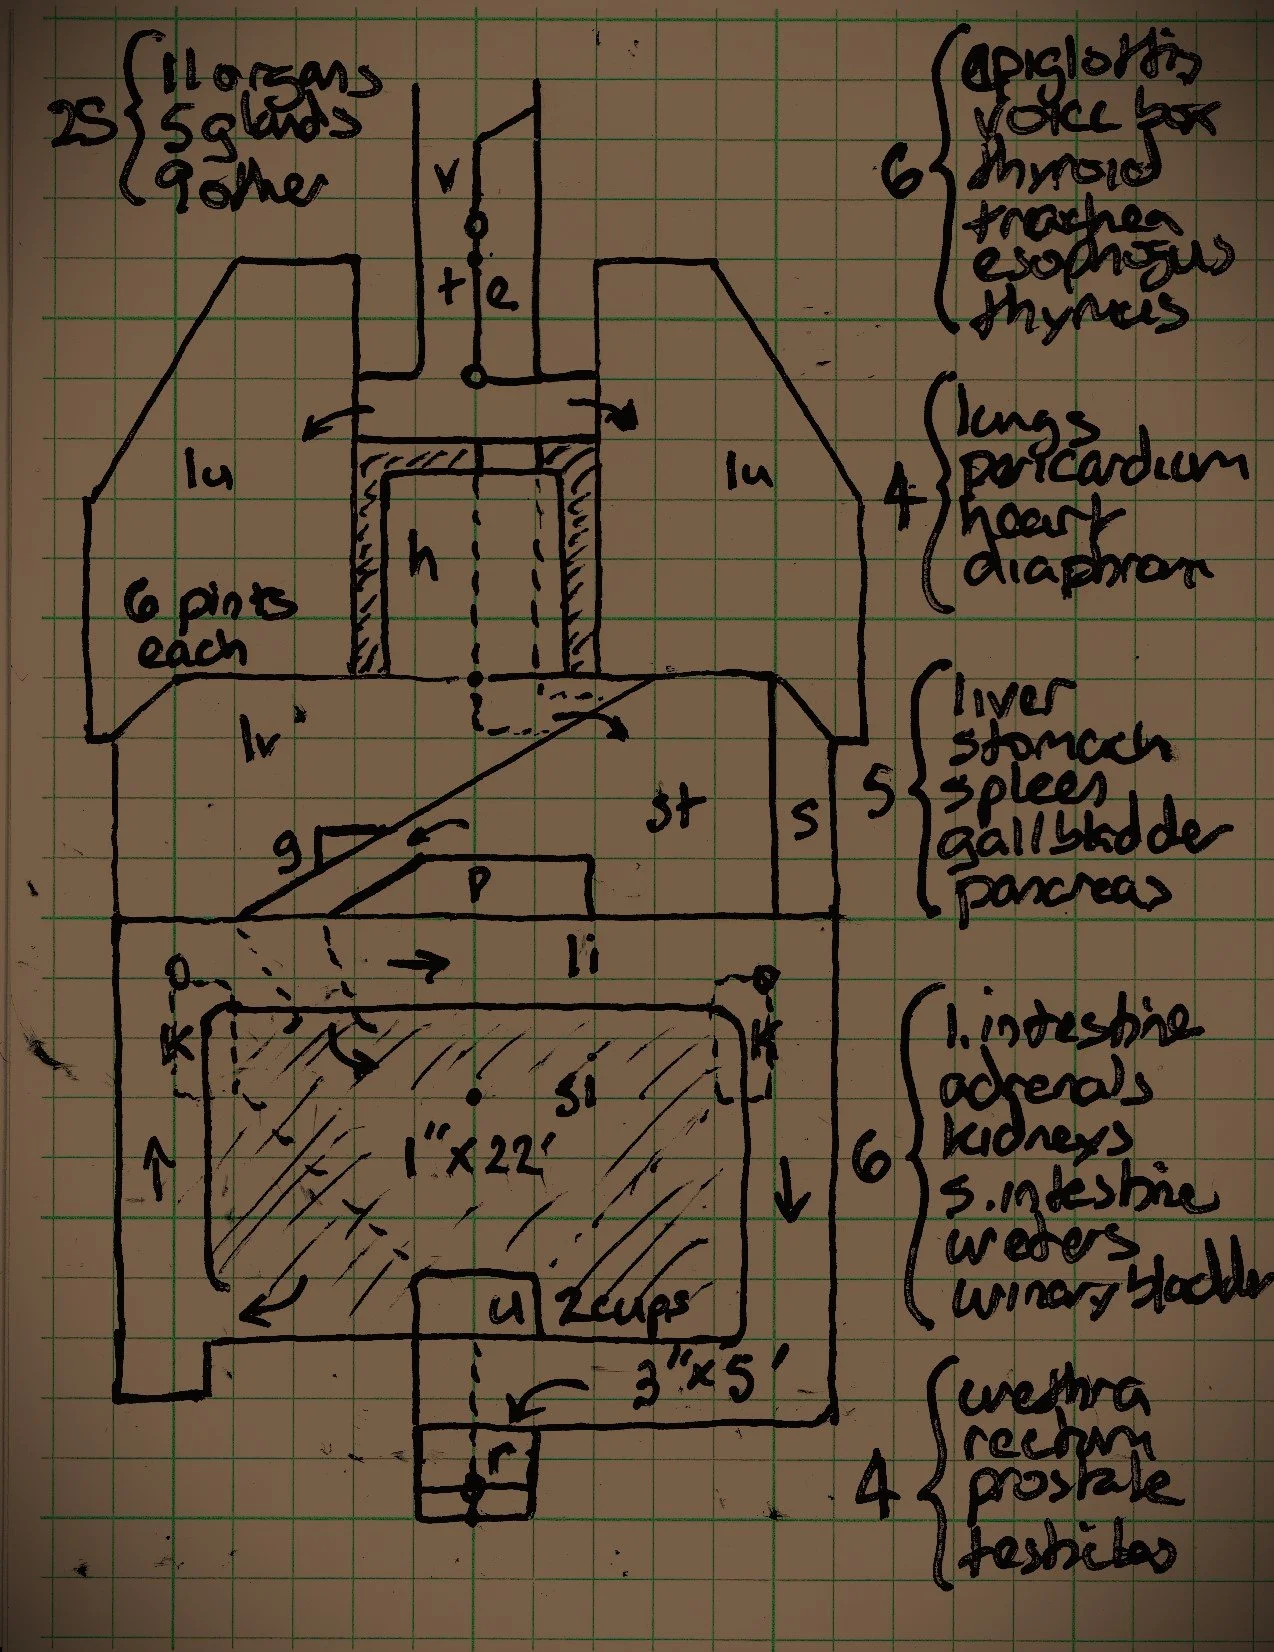 25
11 organs
5 glands
9 other
6
epiglottis
voice box
thyroid
trachea
esophogus
thymus
v
t e
4
lungs
pericardium
heart
diaphram
lu
lu
h
6 pints
each
5
liver
stomach
spleen
gallbladder
pancreas
lv
st
s
g
p
li
6
l. intestine
adrenals
kidneys
s. intestine
ureters
urinary bladder
K
K
si
1" x 22'
u
2 cups
3" x 5'
r
4
urethra
rectum
prostate
testicles